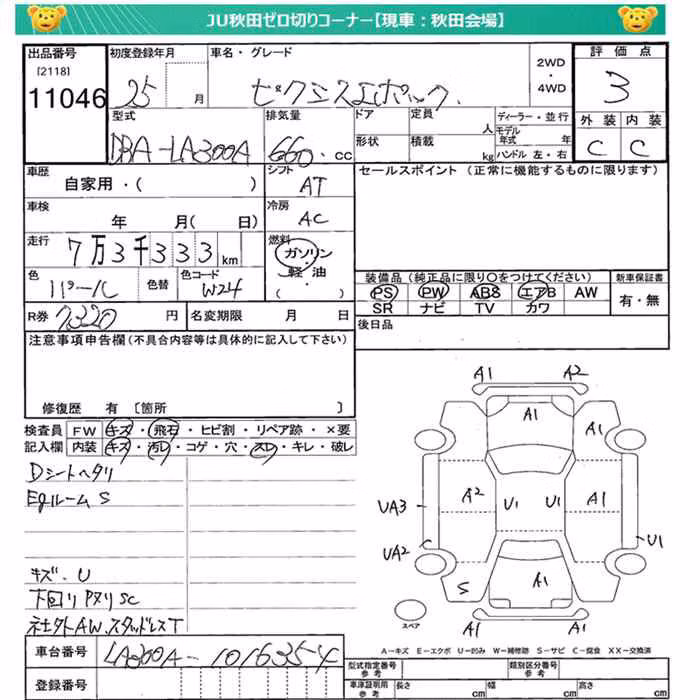 JU秋田ゼロ切りコーナー【現車：秋田会場】
出品番号
[2118]
11046
初度登録年月
25 月
車名・グレード
ピクシスエポック
2WD
・
4WD
評価点
3
型式
DBA-LA300A
排気量
660. cc
ドア
定員
人
ディーラー・並行
形状
積載
kg
モデル年式 年
ハンドル 左・右
外装 内装
C C
車歴
自家用・( )
シフト
AT
セールスポイント (正常に機能するものに限ります)
車検
年 月( 日)
冷房
AC
走行
7万3千333km
燃料
ガソリン
・
軽・油
( )
色
パール
色替
色コード
W24
装備品(純正品に限り○をつけてください)
新車保証書
PS PW ABS エアB AW
SR ナビ TV カワ
有・無
R券 7320 円
名変期限 月 日
後日品
注意事項申告欄(不具合内容等は具体的に記入して下さい)
修復歴 有 [箇所 ]
検査員
記入欄
FW キズ・飛石・ヒビ割・リペア跡・×要
内装 キズ・汚レ・コゲ・穴・スレ・キレ・破レ
Dシートヘタリ
Egルーム S
キズ・U
下回り Pヌリ SC
社外AW、スタッドレスT
A1 A2
A1 A1
A2 U1 U1 A1
UA3
UA2 U1
S A1
A1 A1
スペア
A－キズ E－エクボ U－凹み W－補修跡 S－サビ C－腐食 XX－交換済
車台番号 LA300A-
登録番号
型式指定番号
参考
類別区分番号
参考
車庫証明用
参考
長さ cm
幅 cm
高さ cm